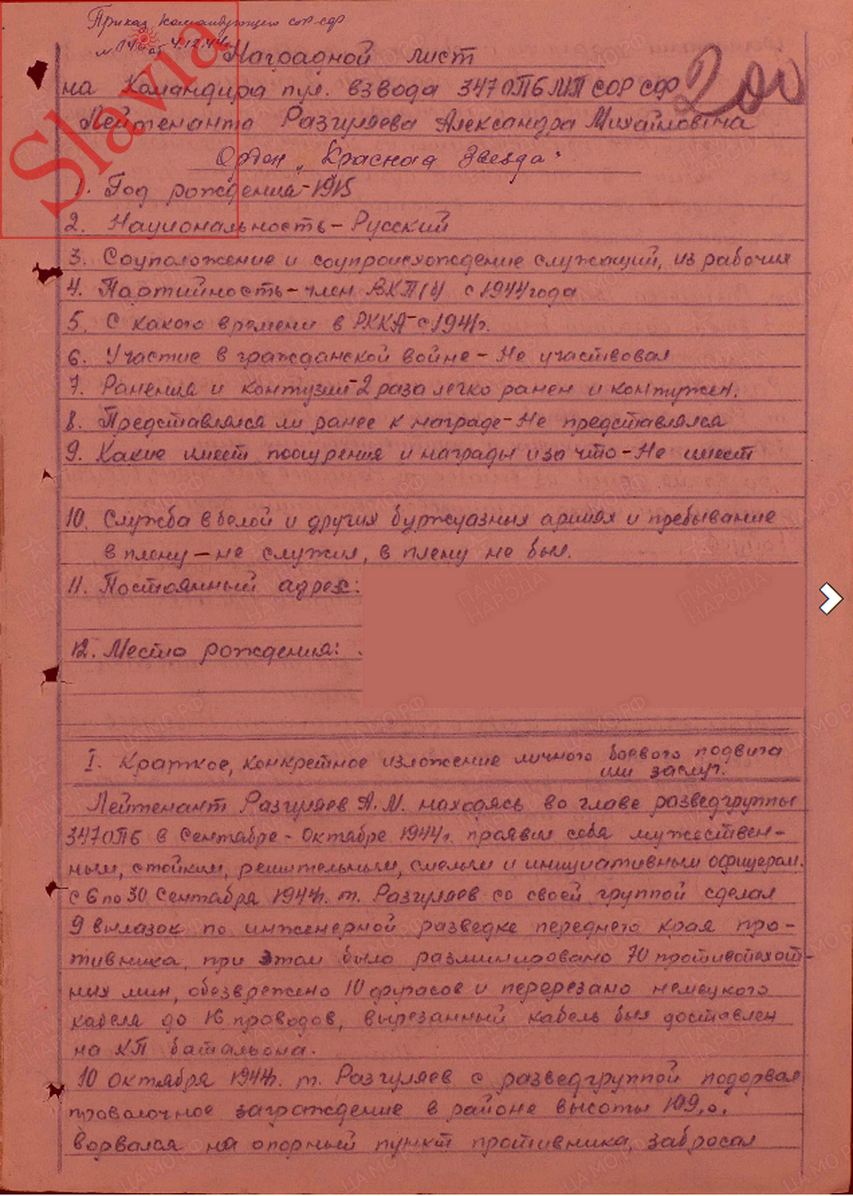 Приказ командующего СОР СФ
№ 14 от 4.12.44
Slavia
Наградной лист
200
на Командира пул. взвода 347 ОПБ МП СОР СФ
Лейтенанта Разгуляева Александра Михайловича
Орден „Красная Звезда"
1. Год рождения - 1915
2. Национальность - Русский
3. Соцположение и соцпроисхождение служащий, из рабочих
4. Партийность - член ВКП(б) с 1944 года
5. С какого времени в РККА - с 1941 г.
6. Участие в гражданской войне - Не участвовал
7. Ранения и контузии - 2 раза легко ранен и контужен.
8. Представлялся ли ранее к награде - Не представлялся
9. Какие имеет поощрения и награды и за что - Не имеет
10. Служба в белой и других буржуазных армиях и пребывание
в плену - не служил, в плену не был.
11. Постоянный адрес:
12. Место рождения:
I. Краткое, конкретное изложение личного боевого подвига
или заслуг.
Лейтенант Разгуляев А.М. находясь во главе разведгруппы
347 ОПБ в Сентябре - Октябре 1944 г. проявил себя мужествен-
ным, стойким, решительным, смелым и инициативным офицером.
С 6 по 30 Сентября 1944 г. т. Разгуляев со своей группой сделал
9 вылазок по инженерной разведке переднего края про-
тивника, при этом было разминировано 70 противопехот-
ных мин, обезврежено 10 фугасов и перерезано немецкого
кабеля до 16 проводов, вырезанный кабель был доставлен
на КП батальона.
10 Октября 1944 г. т. Разгуляев с разведгруппой подорвал
проволочное заграждение в районе высоты 109,0.
ворвался на опорный пункт противника, забросал